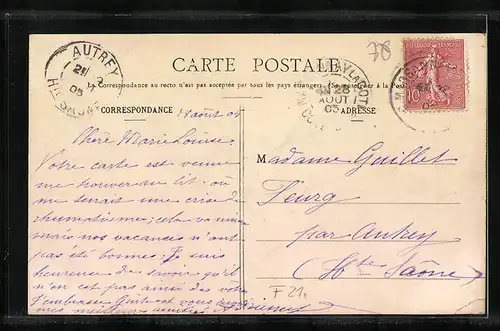 378
AUTREY
05
CARTE POSTALE
La Correspondance au recto n'est pas acceptée par tous les pays étrangers. (Se renseigner à la Poste)
CORRESPONDANCE
ADRESSE
AOUT
05
RÉPUBLIQUE FRANÇAISE
10
août 05
Chère Marie Louise
Votre carte est venue
me trouver au lit où
me tenait une crise de
rhumatisme; cela va mieux
mais nos vacances n'ont
pas été bonnes. Je suis
heureuse de savoir qu'il
n'en est pas ainsi des votres
J'embrasse et vous
mes meilleures amitiés
Madame Guillet
Feurg
par Autrey
(Hte Saône)
F 21